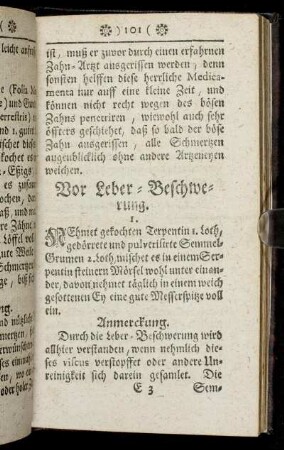 ) 101 (
ist, muß er zuvor durch einen erfahrnen
Zahn-Artzt ausgerissen werden, denn
sonsten helffen diese herrliche Medica-
menta nur auff eine kleine Zeit, und
können nicht recht wegen des bösen
Zahns penetriren, wiewohl auch sehr
össters geschiehet, daß so bald der böse
Zahn ausgerissen, alle Schmertzen
augenblicklich ohne andere Artzeneyen
weichen.
Vor Leber-Beschwe-
rung.
1.
NEhmet gekochten Terpentin 1. loth,
gedörrete und pulverisirte Semmel-
Grumen 2. loth, mischet es in einem Ser-
pentin steinern Mörsel wohl unter einan-
der, davon nehmet täglich in einem weich
gesottenen Ey eine gute Messerspitze voll
ein.
Anmerckung.
Durch die Leber-Beschwerung wird
allhier verstanden, wenn nehmlich die-
ses viscus verstopffet oder andere Un-
reinigkeit sich darein gesamlet. Die
E 3 Sem-
leicht
(Folia
und
terrestris)
und 1. guten
kochet es
Eßigs
es zusam-
Löffel voll
Schmertzen
ge, biß
ses einem